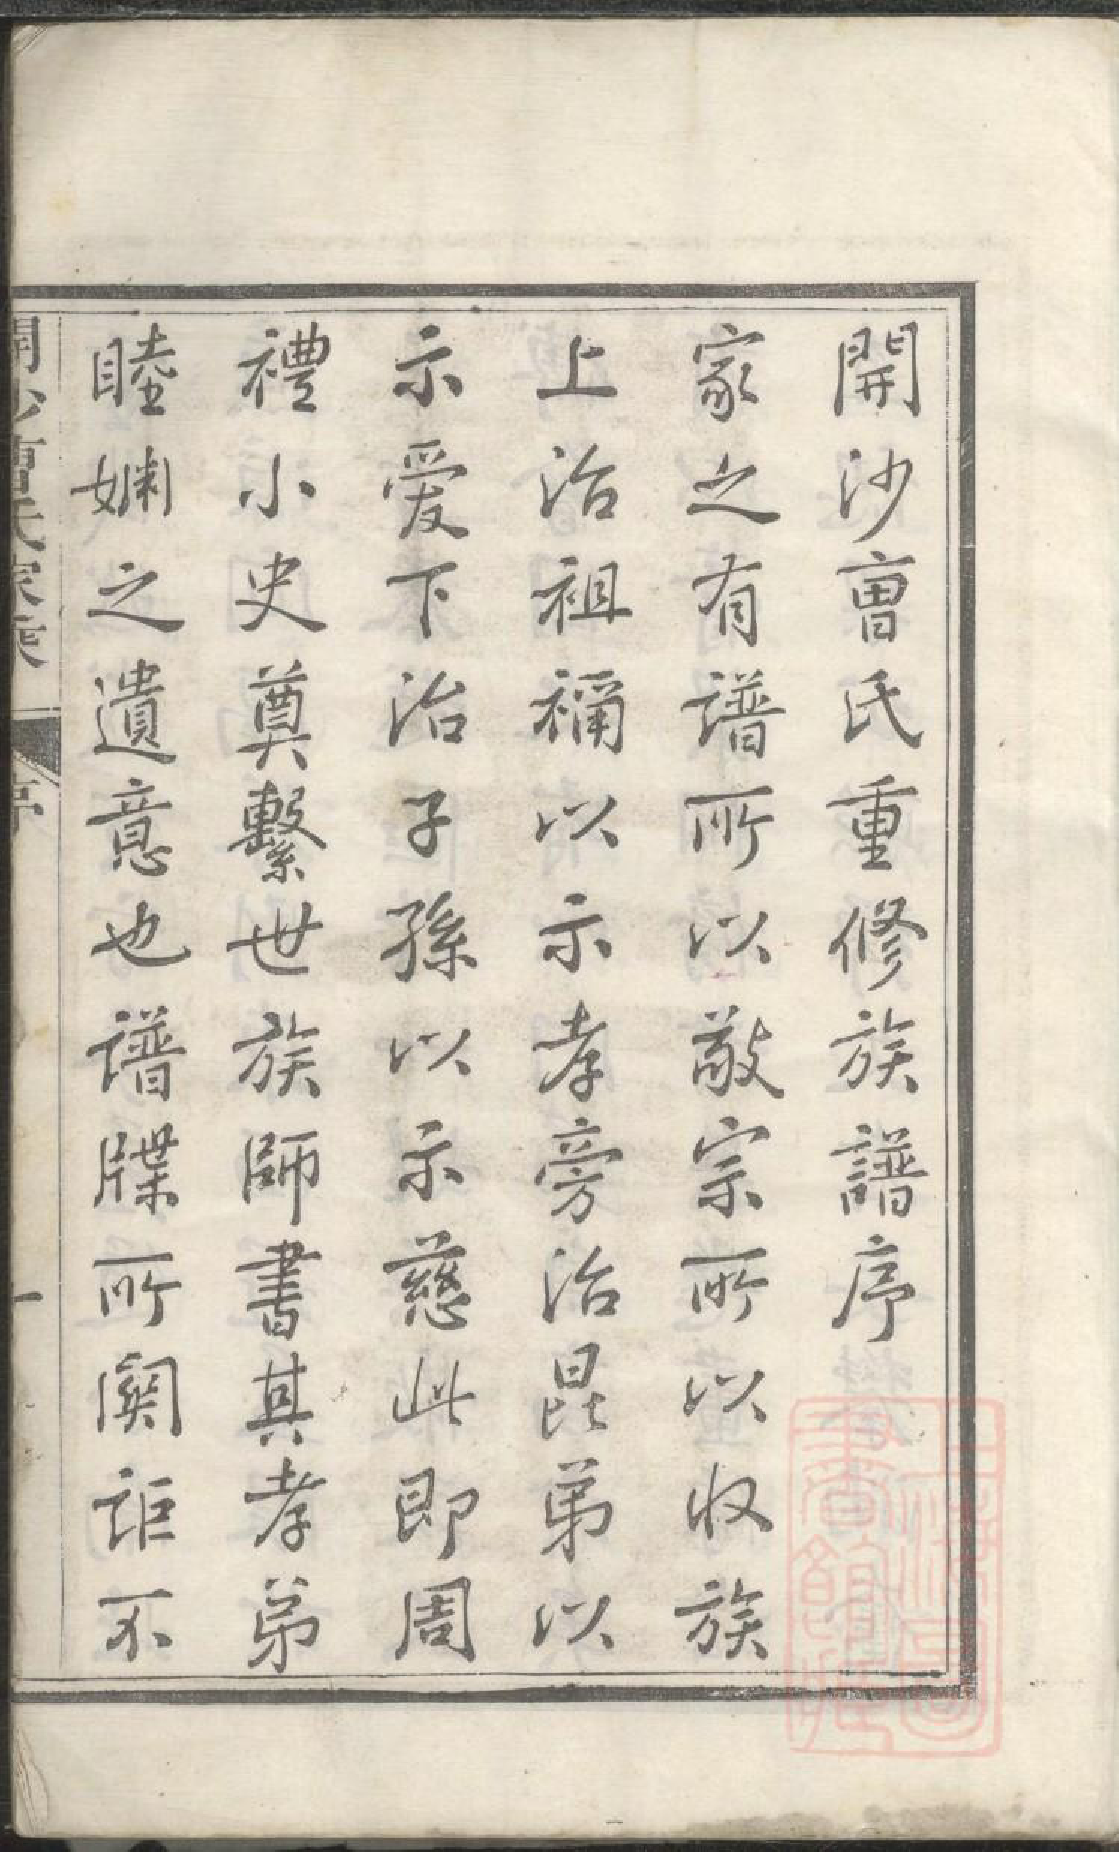 開沙曹氏重修族譜序
家之有譜所以敬宗所以收族
上治祖禰以示孝旁治昆弟以
示爱下治子孫以示慈此即周
禮小史奠繫世族師書其孝弟
睦婣之遺意也譜牒所關詎不
開沙曹氏家乘
序
一
上海圖書館藏